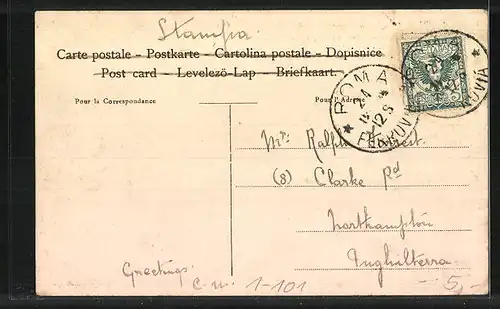 Stampa
Carte postale – Postkarte – Cartolina postale – Dopisnice
Post card – Levelező-Lap – Briefkaart.
Pour la Correspondance
Pour l'Adresse
ROMA
FERROVIA
Mr. Ralph
(8) Clarke Rd
Northampton
Inghilterra
Greetings
C.N. 1-101
5,-